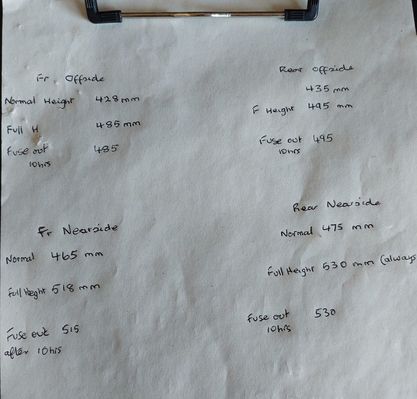 Fr. Offside
Normal Height 428mm
Full H 485mm
Fuse out 485
10hrs
Rear Offside
435mm
F Height 495 mm
Fuse out 495
10hrs
Fr Nearside
Normal 465 mm
Full Height 518mm
Fuse out 515
after 10hrs
Rear Nearside
Normal 475 mm
Full Height 530 mm (always
Fuse out 530
10hrs